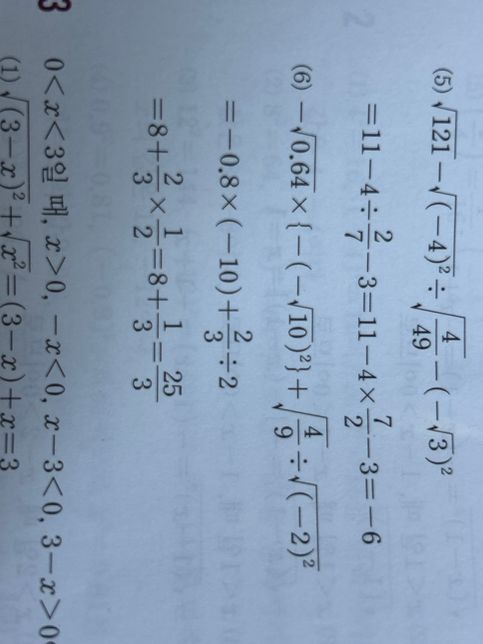 (5) √121 − √(−4)² ÷ √(4/49) − (−√3)²
= 11 − 4 ÷ 2/7 − 3 = 11 − 4 × 7/2 − 3 = −6
(6) −√0.64 × {−(−√10)²} + √(4/9) ÷ √(−2)²
= −0.8 × (−10) + 2/3 ÷ 2
= 8 + 2/3 × 1/2 = 8 + 1/3 = 25/3
3 0<x<3일 때, x>0, −x<0, x−3<0, 3−x>0
(1) √(3−x)² + √x² = (3−x) + x = 3